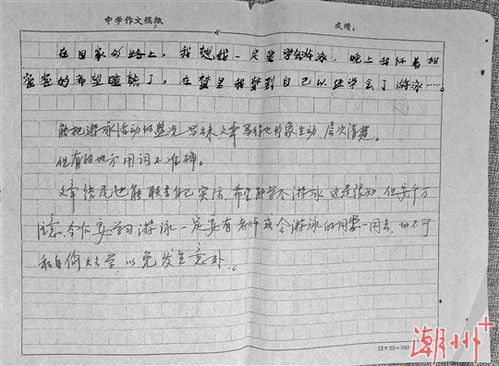 中学作文稿纸 成绩:
在回家的路上,我想我一定要学会游泳,晚上我怀着甜
蜜蜜的希望睡熟了,在梦里我梦到自己以还学会了游泳……
能把游泳活动的盛况写出来,文章写得也形象生动,层次清楚。
但有的地方用词不准确。
文章结尾也能联系自己实际,希望能学会游泳,这是很好,但要千万
注意,今后要学习游泳一定要有老师或会游泳的同学一同去,切不可
私自偷去学,以免发生意外。
潮州+